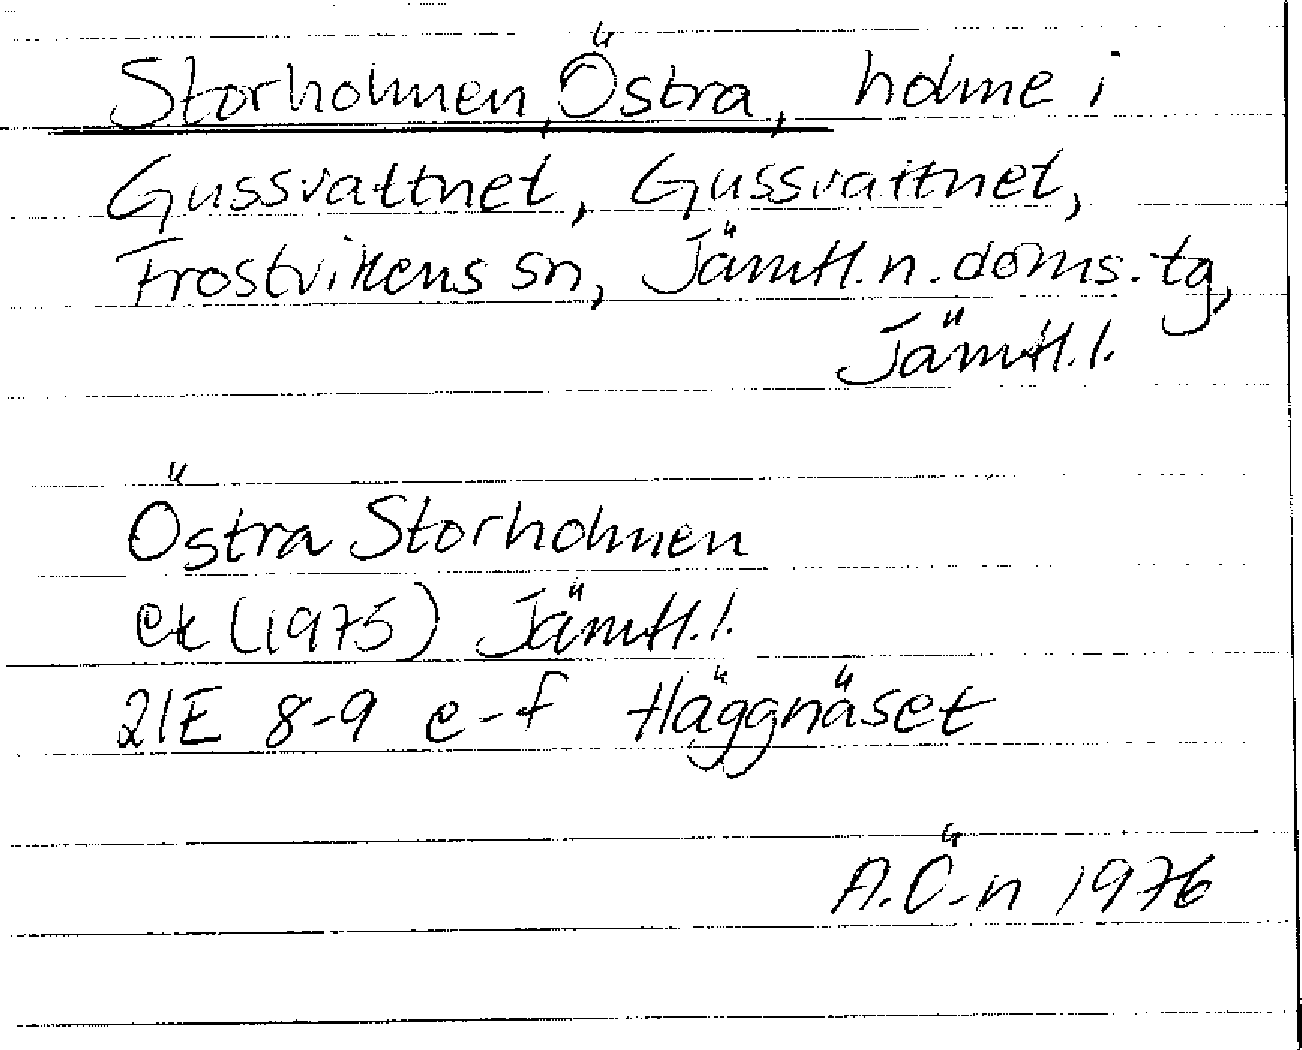 Storholmen, Östra, holme i
Gussvattnet, Gussvattnet,
Frostvikens sn, Jämtl. n. doms. tg,
Jämtl. l.
Östra Storholmen
ek (1975) Jämtl. l.
21E 8-9 e-f Häggnäset
A.Ö-n 1976